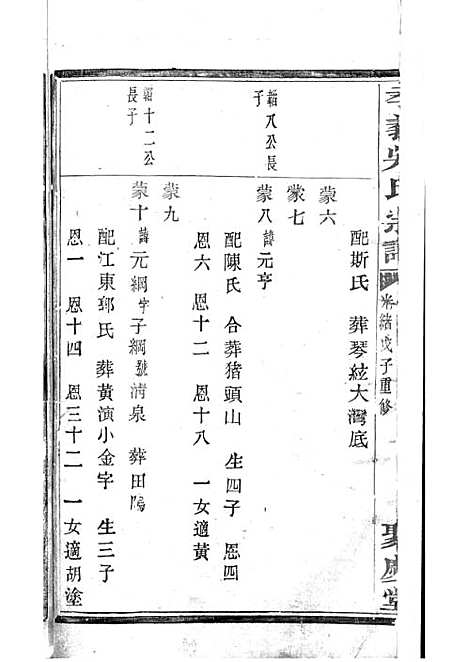 孝義吳氏宗譜
光緒戊子重修
聚慶堂
配斯氏 葬琴絃大灣底
蒙六
蒙七
韜八公長子
蒙八 諱元亨
配陳氏 合葬猪頭山 生四子 恩四
恩六 恩十二 恩十八 一女適黄
蒙九
韜十二公長子
蒙十 諱元綱 字子綱 號淸泉 葬田陽
配江東郎氏 葬黄演小金字 生三子
恩一 恩十四 恩三十二 一女適胡塗